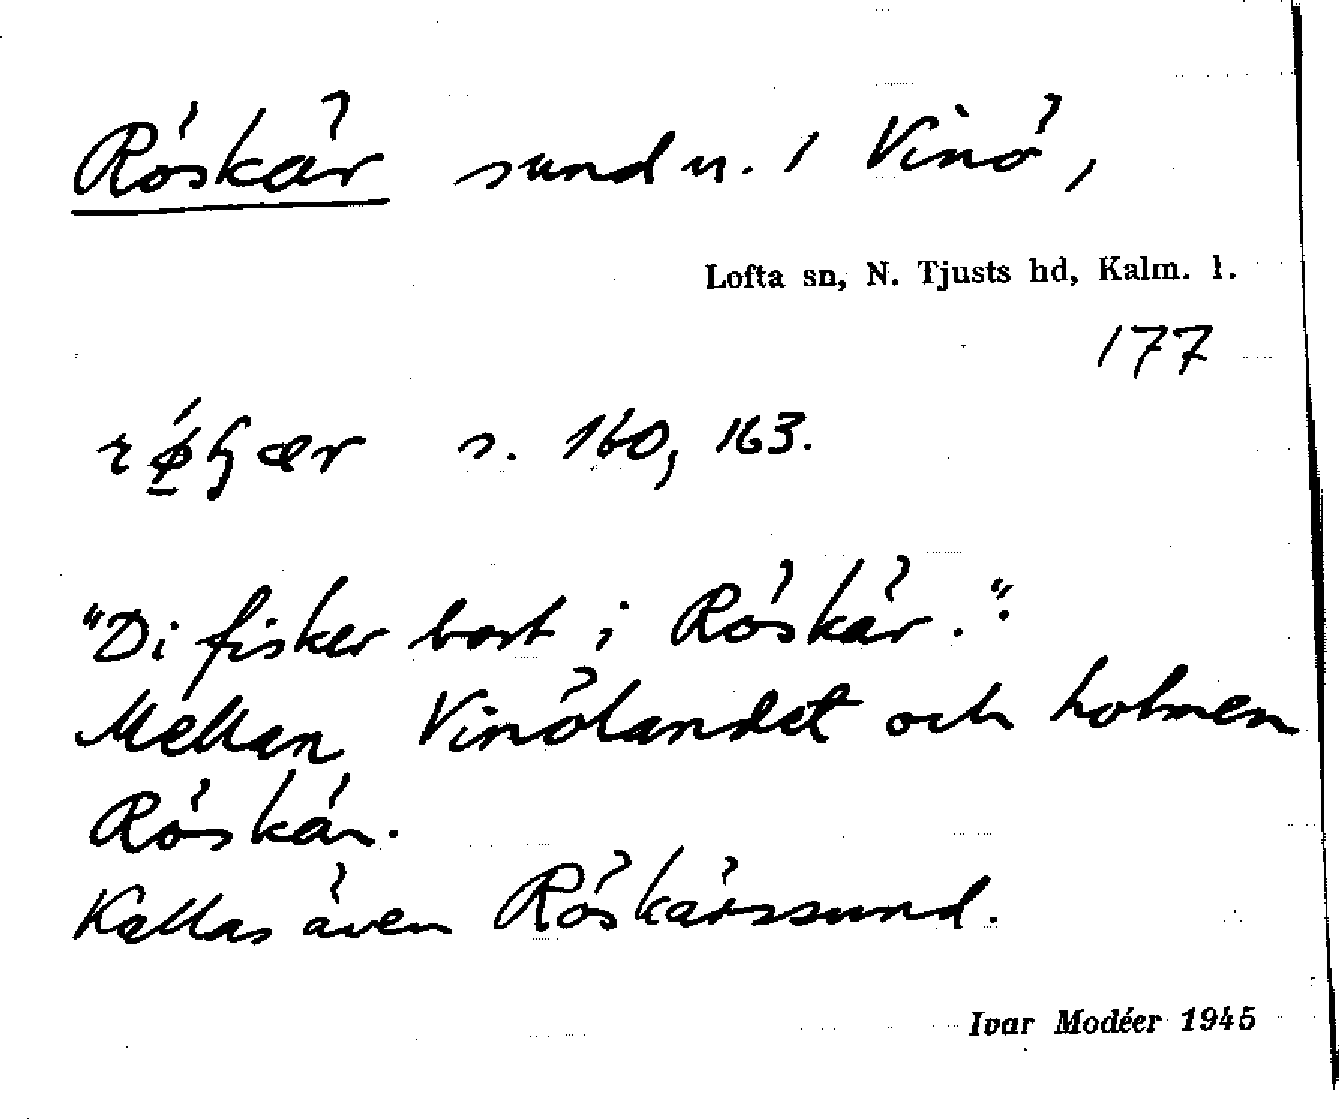 Röskär sund n. 1 Vinö,
Lofta sn, N. Tjusts hd, Kalm. l.
177
s. 160, 163.
"Di fisker bort i Röskär.":
Mellan Vinölandet och holmen
Röskär.
Kallas även Röskärssund.
Ivar Modéer 1945